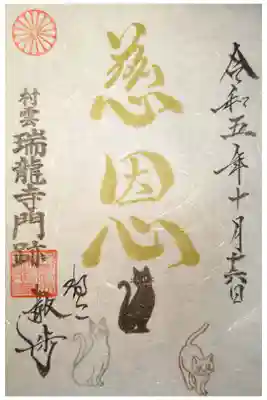 令和五年十月十六日
慈恩
村雲
瑞龍寺門跡